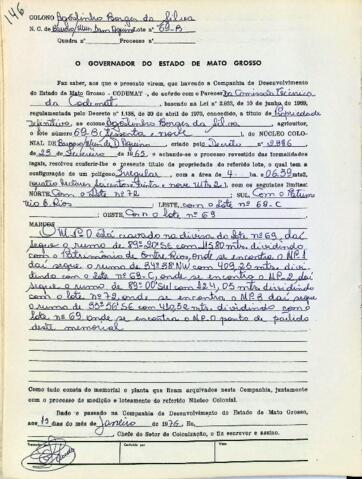 146
COLONO Agostinho Borges da Silva
N. C. de Lote nº 69-B
Quadra nº Processo nº
O GOVERNADOR DO ESTADO DE MATO GROSSO
Faz saber, aos que o presente virem, que havendo a Companhia de Desenvolvimento
do Estado de Mato Grosso - CODEMAT -, de acôrdo com o Parecer da Comissão Técnica
da Codemat, baseado na Lei nº 2.855, de 10 de junho de 1969,
regulamentada pelo Decreto nº 1.138, de 20 de abril de 1970, concedido, a título de Propriedade
definitivo, ao colono Agostinho Borges da Silva, agricultor,
o lote número 69-B (sessenta e nove), do NÚCLEO COLO-
NIAL DE criado pelo Decreto nº 2.896
de 23 de Fevereiro de 1965, e achando-se o processo revestido das formalidades
legais, resolveu conferir-lhe o presente título de propriedade do referido lote, o qual tem a
configuração de um polígono irregular, com a área de 4 ha. 06.39 mts2,
com os seguintes limites:
NORTE, Com o lote nº 72 SUL, Com o Patrimo
nio E. Rios LESTE, com o lote nº 69-C
OESTE, Com o lote nº 69
MARCOS O M.P.0 está cravado na divisa do lote nº 69, daí
segue o rumo de com mts. dividindo
com o Patrimônio de Entre Rios, onde se encontra o MP.1
daí segue o rumo de com 409,25 mts. divi
dindo com o lote nº 69-C, onde se encontra o MP.2 daí
segue o rumo de com 124,05 mts. dividindo
com o lote nº 72, onde se encontra o MP.3 daí segue
o rumo de com mts. dividindo com o
lote nº 69 onde se encontra o MP.0 ponto de partida
deste memorial
Como tudo consta do memorial e planta que ficam arquivados nesta Companhia, juntamente
com o processo de medição e loteamento do referido Núcleo Colonial.
Dado e passado na Companhia de Desenvolvimento do Estado de Mato Grosso,
aos 12 dias do mês de Janeiro de 1976. Eu,
Chefe do Setor de Colonização, o fiz escrever e assino.